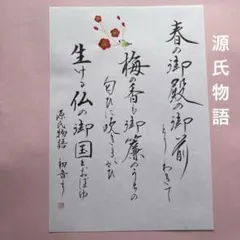 春の御殿の御前
とりわきて
梅の香も御簾のうちの
匂ひに吹きまがひ
生ける仏の御国とおぼゆ
源氏物語 初音より
源氏物語